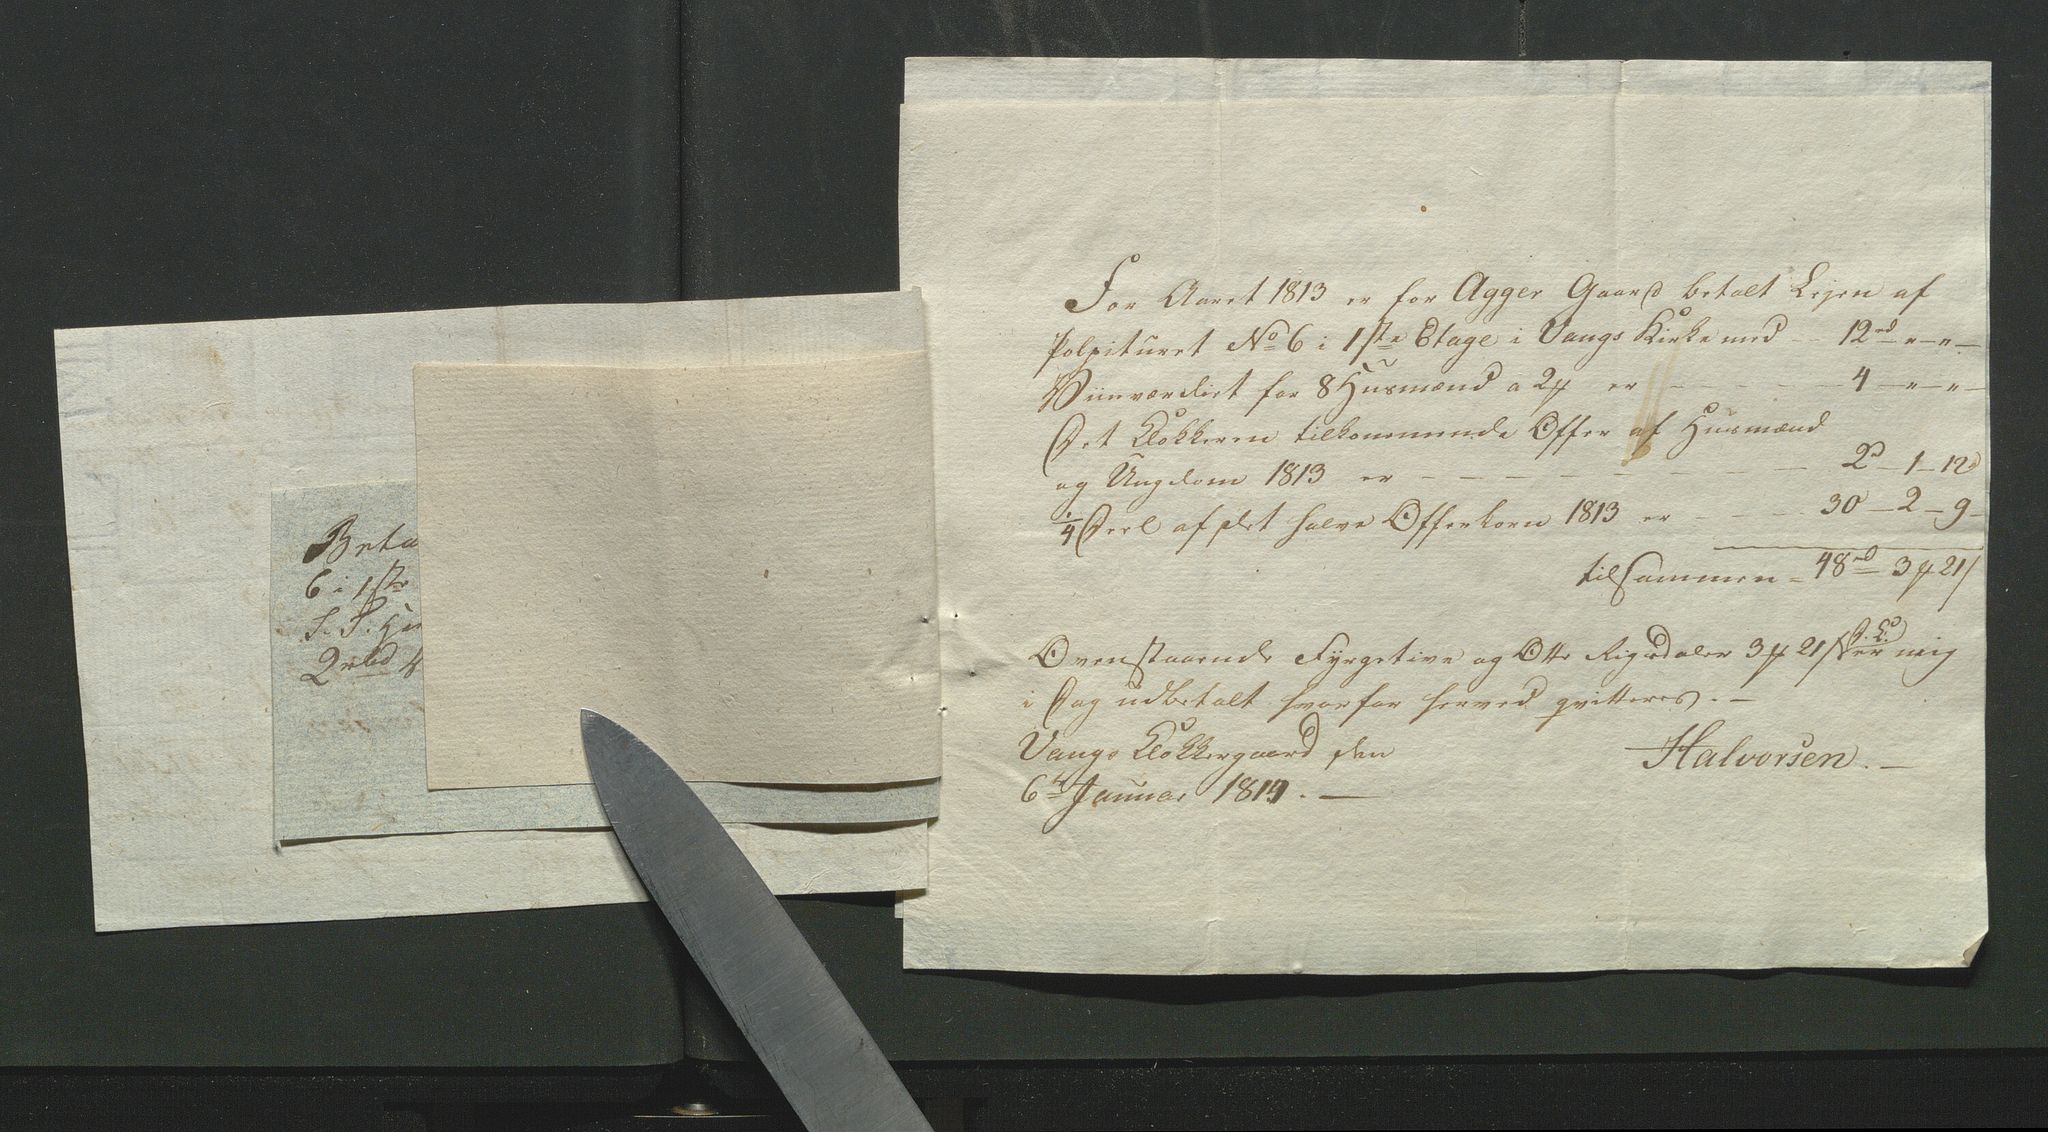 Beta
6 i 1ste
S. S. Hu
2 rbd 4
For Aaret 1813 er for Agger Gaard betalt Lejen af
Polpituret No 6 i 1ste Etage i Vangs Kirke med -- 12rd " - " -
Viinværdiet for 8 Husmænd a 2 ℳ er - - - - 4 - " - " -
Det Klokkeren tilkommende Offer af Husmænd
og Ungdom 1813 er - - - - - - - 2 - 1 - 12
1/4 Deel af det halve Offerkorn 1813 er - - - 30 - 2 - 9 -
tilsammen = 48rd 3 ℳ 21 s
Ovenstaaende Fyrgetive og Otte Rigsdaler 3 ℳ 21 s er mig
i Dag udbetalt hvorfor herved qvitteres. -
Vangs Klokkergaard den
Halvorsen. -
6te Januar 1814. -